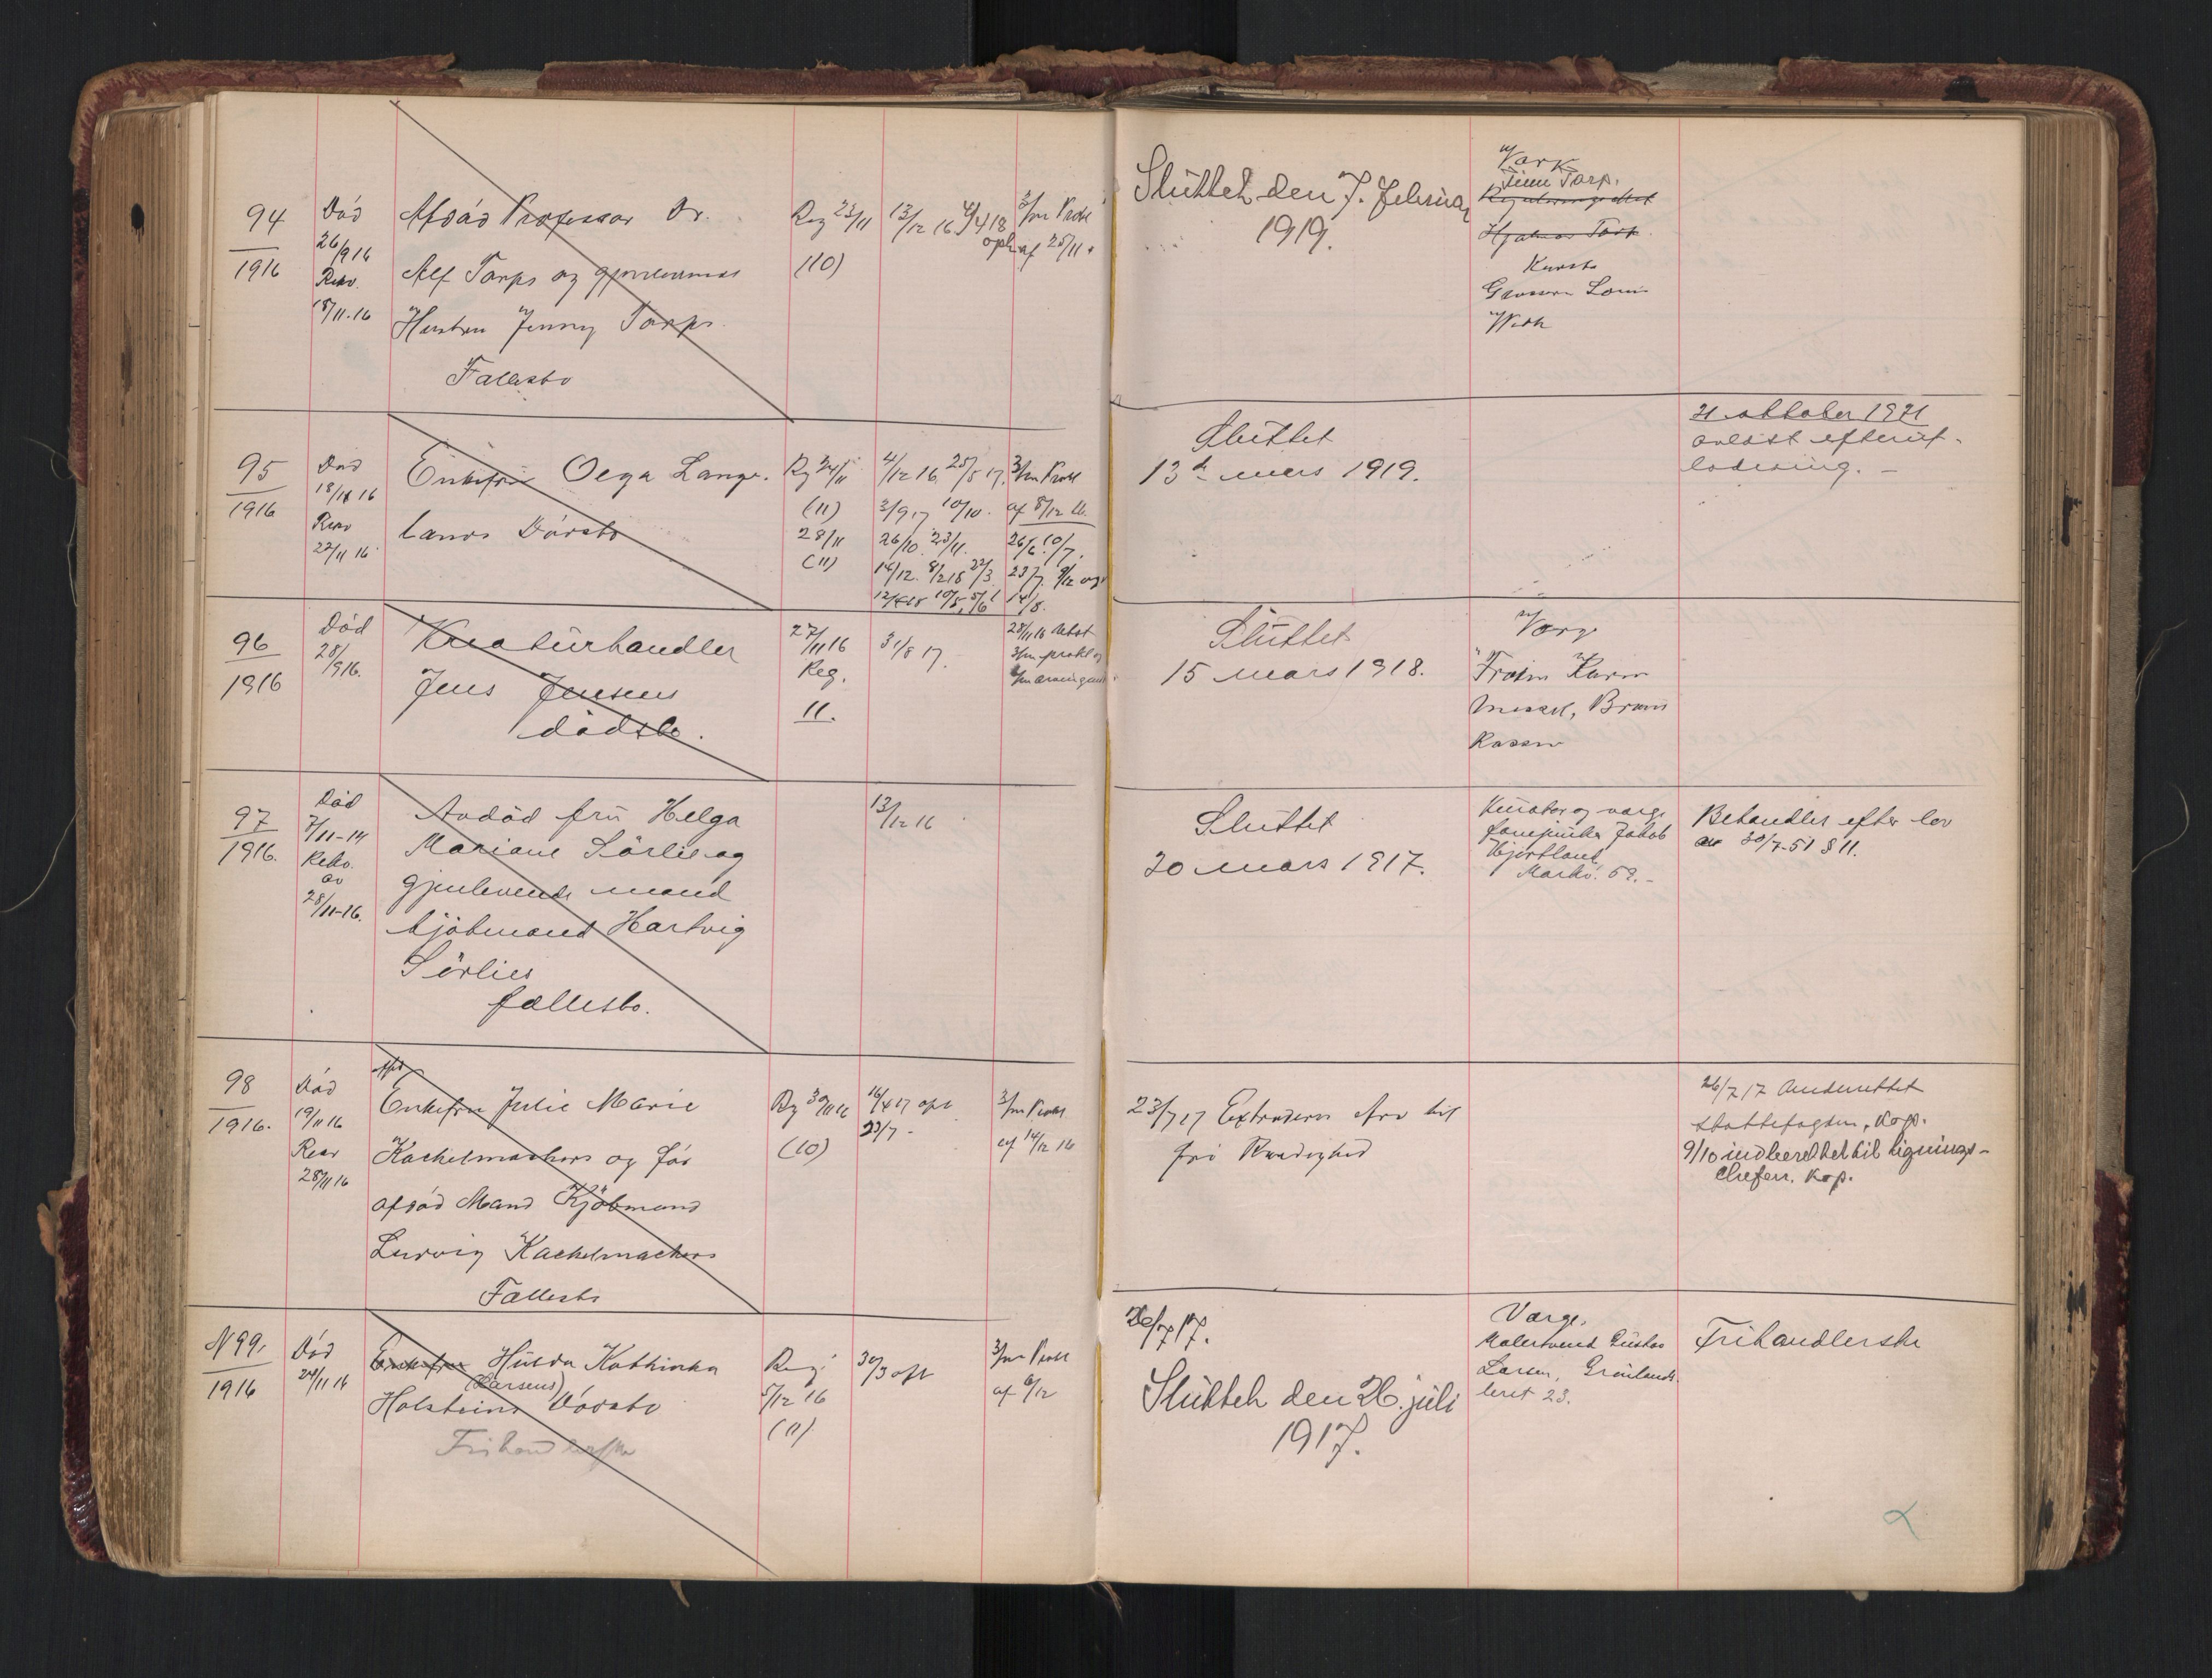 94
1916
Död
26/9 16
Rekv.
18/11-16
Afdöd Professor Dr.
Alf Torps og gjenlevende
Hustru Jenny Torps
Fællesbo
Reg 23/11
(10)
13/12 16 4/4 18
oph
3/m Prokl
af 25/11
Sluttet den 7. februar
1919.
Finn Torp.
Hjalmar Torp
95
1916
Död
18/11 16
Rekv
22/11 16
Enkefru Olga Lange
Dödsbo
Rg 24/11
(11)
28/11
(11)
4/12 16. 25/5 17.
3/9 17 10/10.
26/10. 23/11.
14/12. 8/2 18 22/3
3/m Prokl
af 8/12 16.
26/6. 10/7.
14/8.
Sluttet
13de mars 1919.
21 oktober 1921
avlöst efterut-
lodning. -
96
1916
Död
28/9 16.
Kreaturhandler
Jens Jensens
dödsbo.
27/11 16
Reg.
11.
31/8 17.
28/11 16
3/m prokl og
Sluttet
15 mars 1918.
Verge
97
1916.
Död
7/11-14
Rekv.
av
28/11-16.
Avdöd fru Helga
Mariane Sörlie og
gjenlevende mand
kjöbmand Hartvig
Sörlies
fællesbo.
13/12 16
Sluttet
20 mars 1917.
Kurator og verge
Jakob
Hjortland
Markv. 52.-
Behandles efter lov
av 30/7-51 § 11.
98
1916.
Död
19/11 16
Rekv
28/11 16
Afd
Enkefru Julie Marie
Kachelmachers og för
afdöd Mand Kjöbmand
Ludvig Kachelmachers
Fællesbo
Rg 30/11 16
(10)
16/4 17 oph
23/7 -
3/m Prokl
af 14/12 16
23/7 17 Extraderes Arv til
fri Raadighed
26/7 17 Underrettet
skattefogden, kop.
9/10 indberettet til lignings-
chefen. Kop.
N 99.
1916
Död
24/11 16
Enkefru Hulda Kathinka
(Larsens)
Holsteins Dödsbo
Frihandlerske
Reg.
5/12 16
(11)
30/3 oph
3/m Prokl
af 6/12
26/7 17.
Sluttet den 26. juli
1917.
Verge.
Malersvend Gustav
Larsen, Grönlands
leret 23.
Frihandlerske